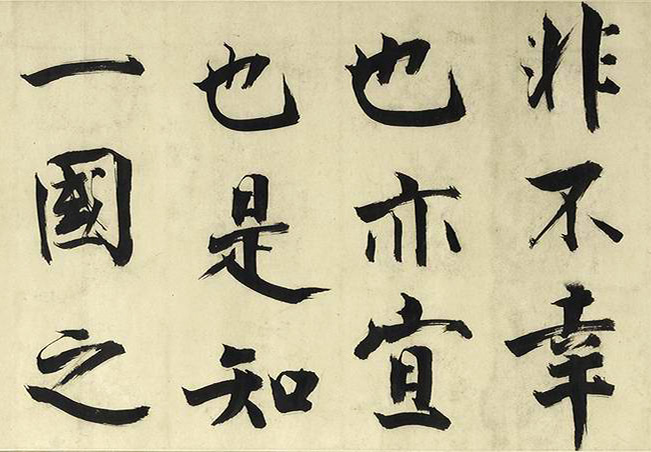 非不幸
也亦宜
也是知
一國之